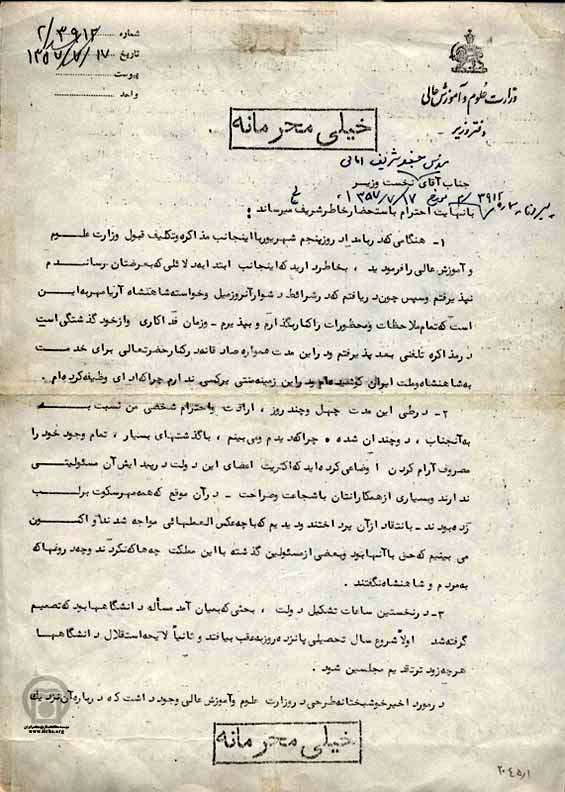 شماره ۲/۳۹۱۲
تاریخ ۱۳۵۷/۷/۱۷
پیوست
واحد
وزارت علوم و آموزش عالی
دفتر وزیر
خیلی محرمانه
مهندس جعفر شریف امامی
جناب آقای نخست وزیر
۱۳۵۷/۷/۱۷
با نهایت احترام با استحضار خاطر شریف میرساند :
۱- هنگامی که در بامداد روز پنجم شهریور با اینجانب مذاکره و تکلیف قبول وزارت علوم
و آموزش عالی را فرمودید ، بخاطر دارید که اینجانب ابتدا به دلائلی که بعرضتان رساندم
نپذیرفتم و سپس چون دریافتم که در شرائط دشوار آنروز میل و خواسته شاهنشاه آریامهر به این
است که تمام ملاحظات و محظورات را کنار بگذارم و بپذیرم - و زمان فداکاری و از خود گذشتگی است
در مذاکره تلفنی بعد پذیرفتم و در این مدت همواره صادقانه در کنار حضرتعالی برای خدمت
به شاهنشاه و ملت ایران کوشیده‌ام و در این زمینه منتی بر کسی ندارم چرا که ادای وظیفه کرده‌ام .
۲- در طی این مدت چهل و چند روز ، ارادت و احترام شخصی من نسبت به
به آنجناب ، دو چندان شده . چرا که دیدم و می‌بینم ، با گذشتهای بسیار ، تمام وجود خود را
مصروف آرام کردن اوضاعی کرده‌اید که اکثریت اعضای این دولت در پیدایش آن مسئولیتی
ندارند و بسیاری از همکارانتان با شجاعت و صراحت - در آن موقع که همه مهر سکوت بر لب
زده بودند - بانتقاد از آن پرداختند و دیدیم که با چه عکس‌العملهائی مواجه شدند و اکنون
می بینیم که حق با آنها بود و بعضی از مسئولین گذشته با این مملکت چه‌ها که نکردند و چه دروغها که
به مردم و شاهنشاه نگفتند .
۳- در نخستین ساعات تشکیل دولت ، بحثی که بمیان آمد مسأله دانشگاهها بود که تصمیم
گرفته شد اولاً شروع سال تحصیلی پانزده روز به عقب بیافتد و ثانیاً لایحه استقلال دانشگاهها
هر چه زودتر تقدیم مجلسین شود .
در مورد اخیر خوشبختانه طرحی در وزارت علوم و آموزش عالی وجود داشت که درباره آن نزدیک
خیلی محرمانه
www.iichs.org
۲۰۴۵/۱